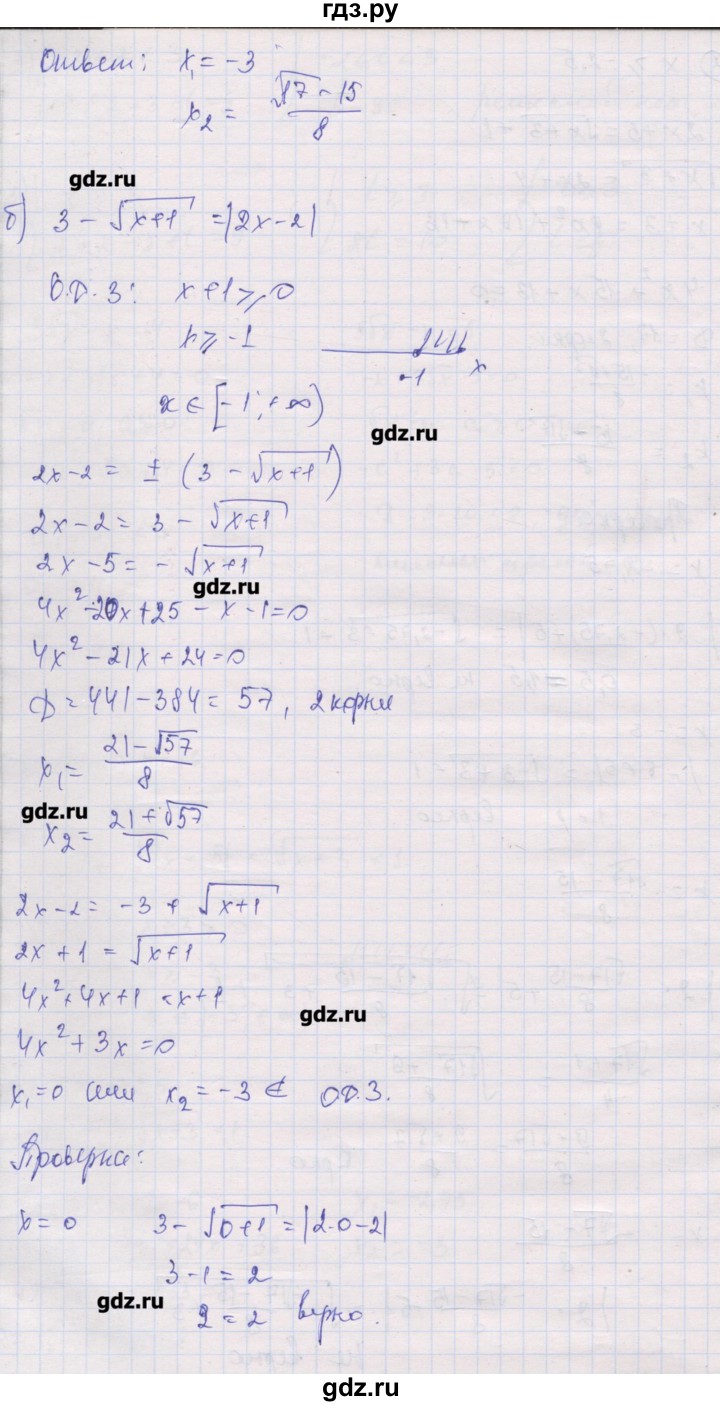 гдз.ру
Ответ: x₁ = -3
x₂ = (√17 - 15)/8
gdz.ru
б) 3 - √(x+1) = |2x-2|
О.Д.З: x+1 ≥ 0
x ≥ -1
-1 x
x ∈ [-1; +∞)
gdz.ru
2x-2 = ± (3 - √(x+1))
2x-2 = 3 - √(x+1)
2x-5 = - √(x+1)
gdz.ru
4x² - 20x + 25 - x - 1 = 0
4x² - 21x + 24 = 0
D = 441 - 384 = 57, 2 корня
x₁ = (21 - √57)/8
gdz.ru
x₂ = (21 + √57)/8
2x-2 = -3 + √(x+1)
2x + 1 = √(x+1)
4x² + 4x + 1 = x+1
gdz.ru
4x² + 3x = 0
x₁ = 0 или x₂ = -3 ∉ О.Д.З.
Проверка:
x = 0 3 - √(0+1) = |2·0-2|
3 - 1 = 2
gdz.ru
2 = 2 верно.
gdz.ru